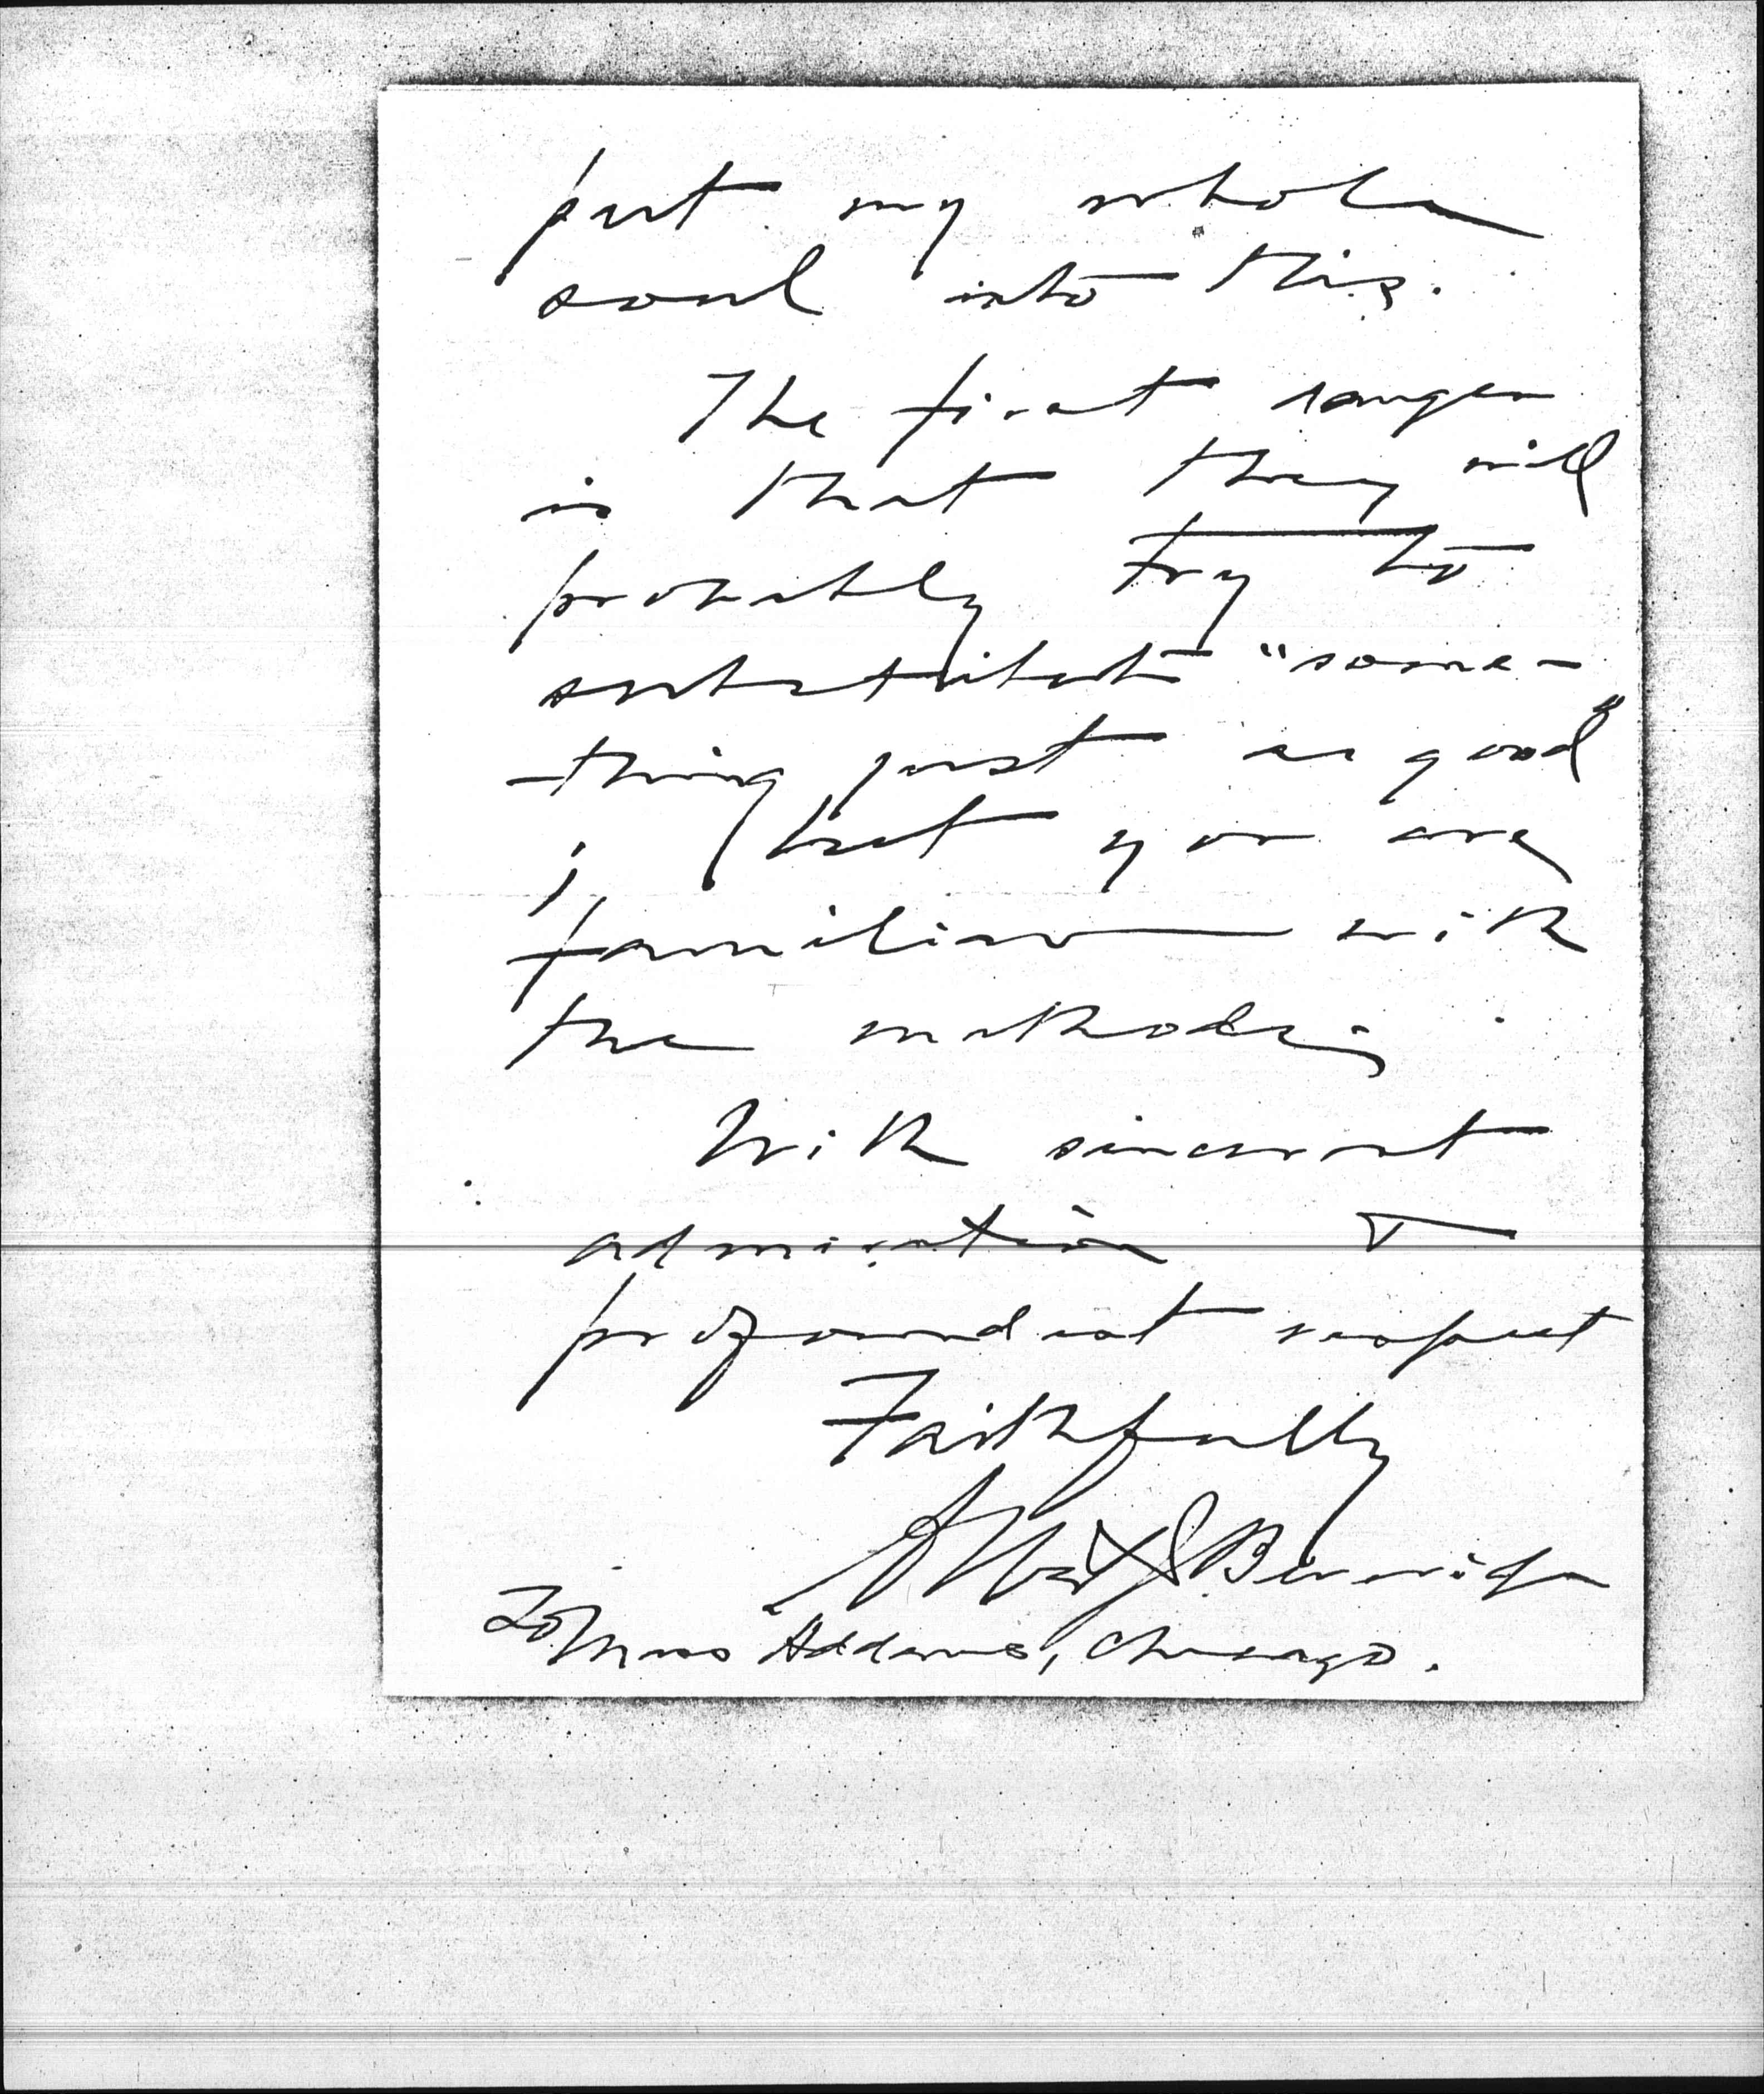 put my whole
soul into this.
The first danger
is that they will
probably try to
substitute "some-
thing just as good"
; but you are
familiar with
the methods;
With sincerest
admiration &
profoundest respect
Faithfully
Albert J Beveridge
To Miss Addams, Chicago.